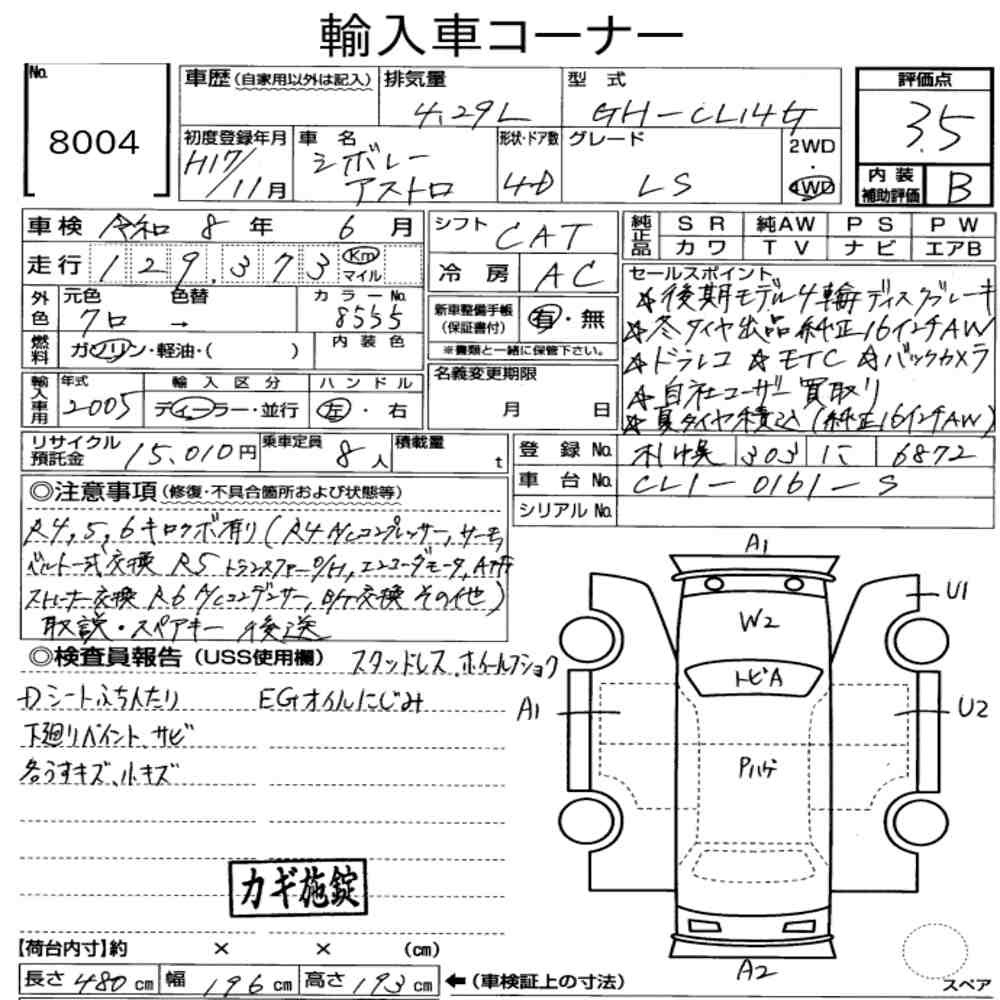 輸入車コーナー
No.
8004
車歴(自家用以外は記入)
排気量
4.29L
型式
GH-CL14G
評価点
3.5
初度登録年月
H17/11月
車名
シボレー
アストロ
形状・ドア数
4D
グレード
LS
2WD
・
4WD
内装
補助評価
B
車検 令和8年6月
走行 129,373 Km マイル
外色
元色 クロ
色替 →
カラーNo. 8555
燃料
ガソリン・軽油・( )
内装色
輸入車用
年式 2005
輸入区分
ディーラー・並行
ハンドル
左・右
シフト CAT
冷房 AC
新車整備手帳
(保証書付)
有・無
※書類と一緒に保管下さい。
名義変更期限
月 日
純正品
SR 純AW PS PW
カワ TV ナビ エアB
セールスポイント
☆後期モデル4輪ディスクブレーキ
☆冬タイヤ出品純正16インチAW
☆ドラレコ ☆ETC ☆バックカメラ
☆自社ユーザー買取り
☆夏タイヤ積込(純正16インチAW)
リサイクル
預託金
15,010円
乗車定員 8人
積載量 t
登録No. 札幌 303 に 6872
車台No. CL1-0161-S
シリアルNo.
◎注意事項(修復・不具合箇所および状態等)
R4,5,6キロクボ有り(R4 A/Cコンプレッサー,サーモ,
ベルト一式交換 R5 トランスファーO/H,エンコーダモータ,
ストレーナー交換 R6 A/Cコンデンサー,B/T交換 その他)
取説・スペアキー後送
◎検査員報告(USS使用欄) スタッドレス.ホイールフショク
Dシートふちへたり EGオイルにじみ
下廻りペイント、サビ
各うすキズ、小キズ
カギ施錠
A1
U1
W2
トビA
A1
U2
Pハゲ
A2
スペア
【荷台内寸】約 × × (cm)
長さ480cm 幅196cm 高さ193cm ←(車検証上の寸法)